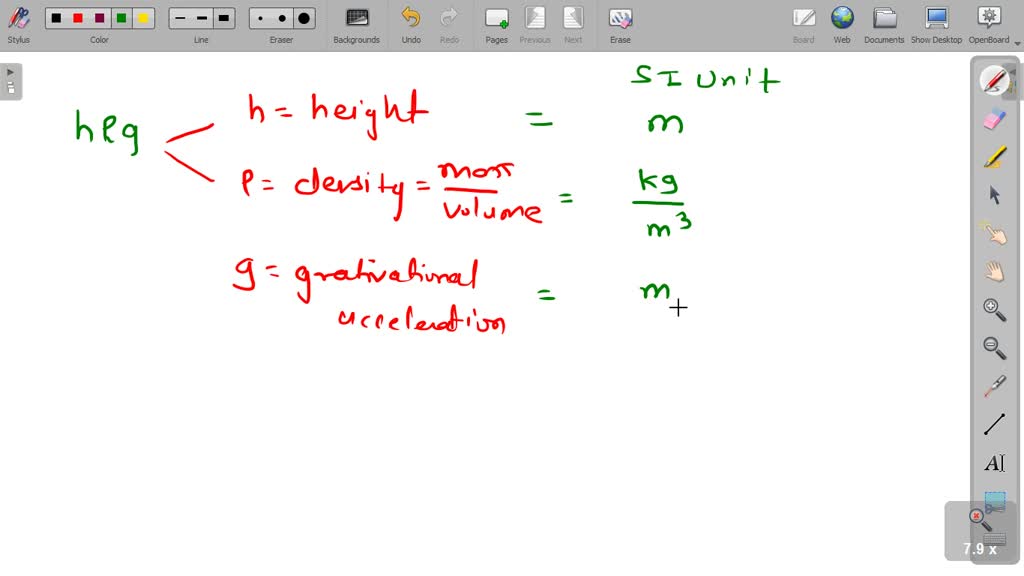 Stylus Color Line Eraser Backgrounds Undo Redo Pages Previous Next Erase Board Web Documents Show Desktop OpenBoard
SI Unit
hρg
h = height = m
ρ = density = mass / volume = kg / m³
g = grativational
acceleration = m
AI
7.9 x